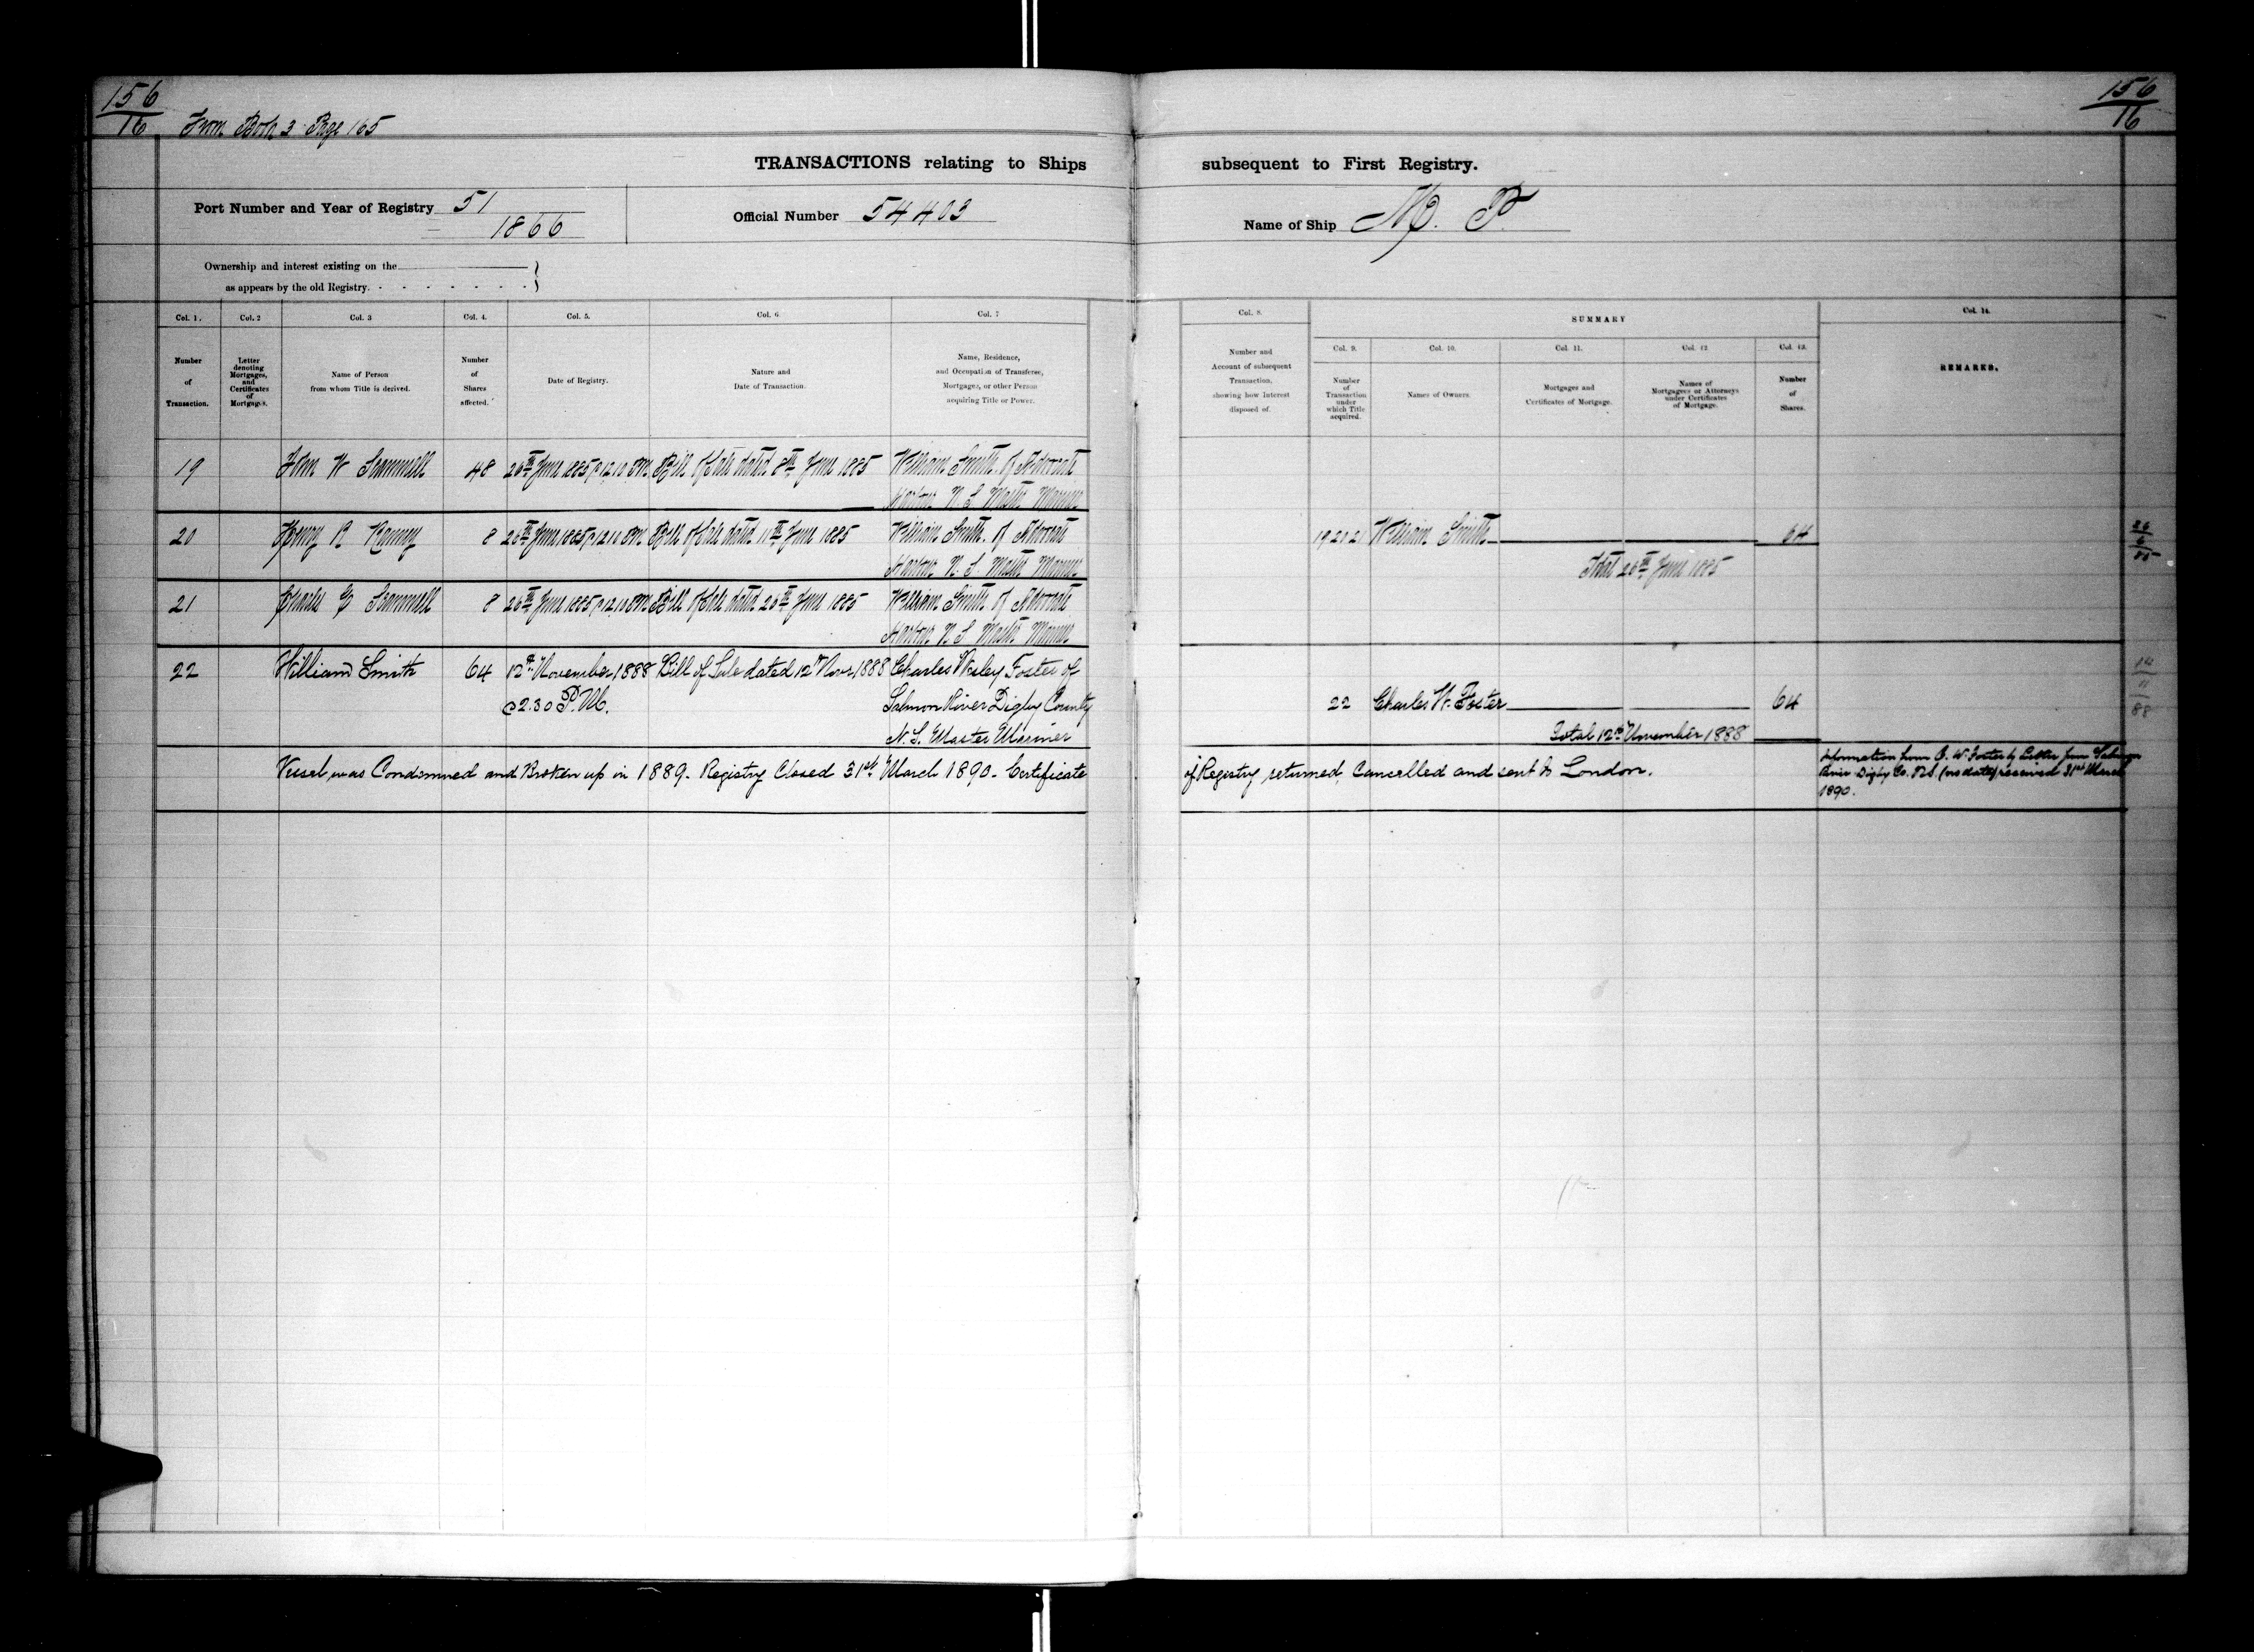 156
16
From Book 3 Page 165
156
16
TRANSACTIONS relating to Ships subsequent to First Registry.
Port Number and Year of Registry 51
1866
Official Number 54403
Name of Ship M. P.
Ownership and interest existing on the
as appears by the old Registry.
Col. 1. Col. 2 Col. 3 Col. 4. Col. 5. Col. 6 Col. 7
Number of Transaction.
Letter denoting Mortgages, and Certificates of Mortgage.
Name of Person from whom Title is derived.
Number of Shares affected.
Date of Registry.
Nature and Date of Transaction.
Name, Residence, and Occupation of Transferee, Mortgagee, or other Person acquiring Title or Power.
Col. 8. SUMMARY Col. 14.
Col. 9. Col. 10. Col. 11. Col. 12 Col. 13.
Number and Account of subsequent Transaction, showing how Interest disposed of.
Number of Transaction under which Title acquired.
Names of Owners.
Mortgages and Certificates of Mortgage.
Names of Mortgagees or Attorneys under Certificates of Mortgage.
Number of Shares.
REMARKS.
19 John W Scammell 48 26th June 1885 @ 12.10 PM. Bill of Sale dated 8th June 1885 William Smith. of Advocate
Harbour N. S Master Mariner
20 Henry R Ranney 8 26th June 1885 @ 12.10 PM. Bill of Sale dated 11th June 1885 William Smith. of Advocate
Harbour N. S. Master Mariner
19 20 21 William Smith 64
Total 26th June 1885
26
6
85
21 Charles E Scammell 8 26th June 1885 @ 12.10 PM. Bill of Sale dated 26th June 1885 William Smith of Advocate
Harbour N S Master Mariner
22 William Smith 64 12th November 1888 Bill of Sale dated 12th Novr 1888 Charles Wesley Foster of
@ 2.30 P.M. Salmon River Digby County
N. S. Master Mariner
22 Charles W. Foster 64
Total 12th November 1888
11
88
Vessel was Condemned and Broken up in 1889. Registry Closed 31st March 1890. Certificate
of Registry returned, Cancelled and sent to London.
Information from C. W. Foster by Letter from Salmon
River Digby Co. N.S. (no date) received 31st March
1890.